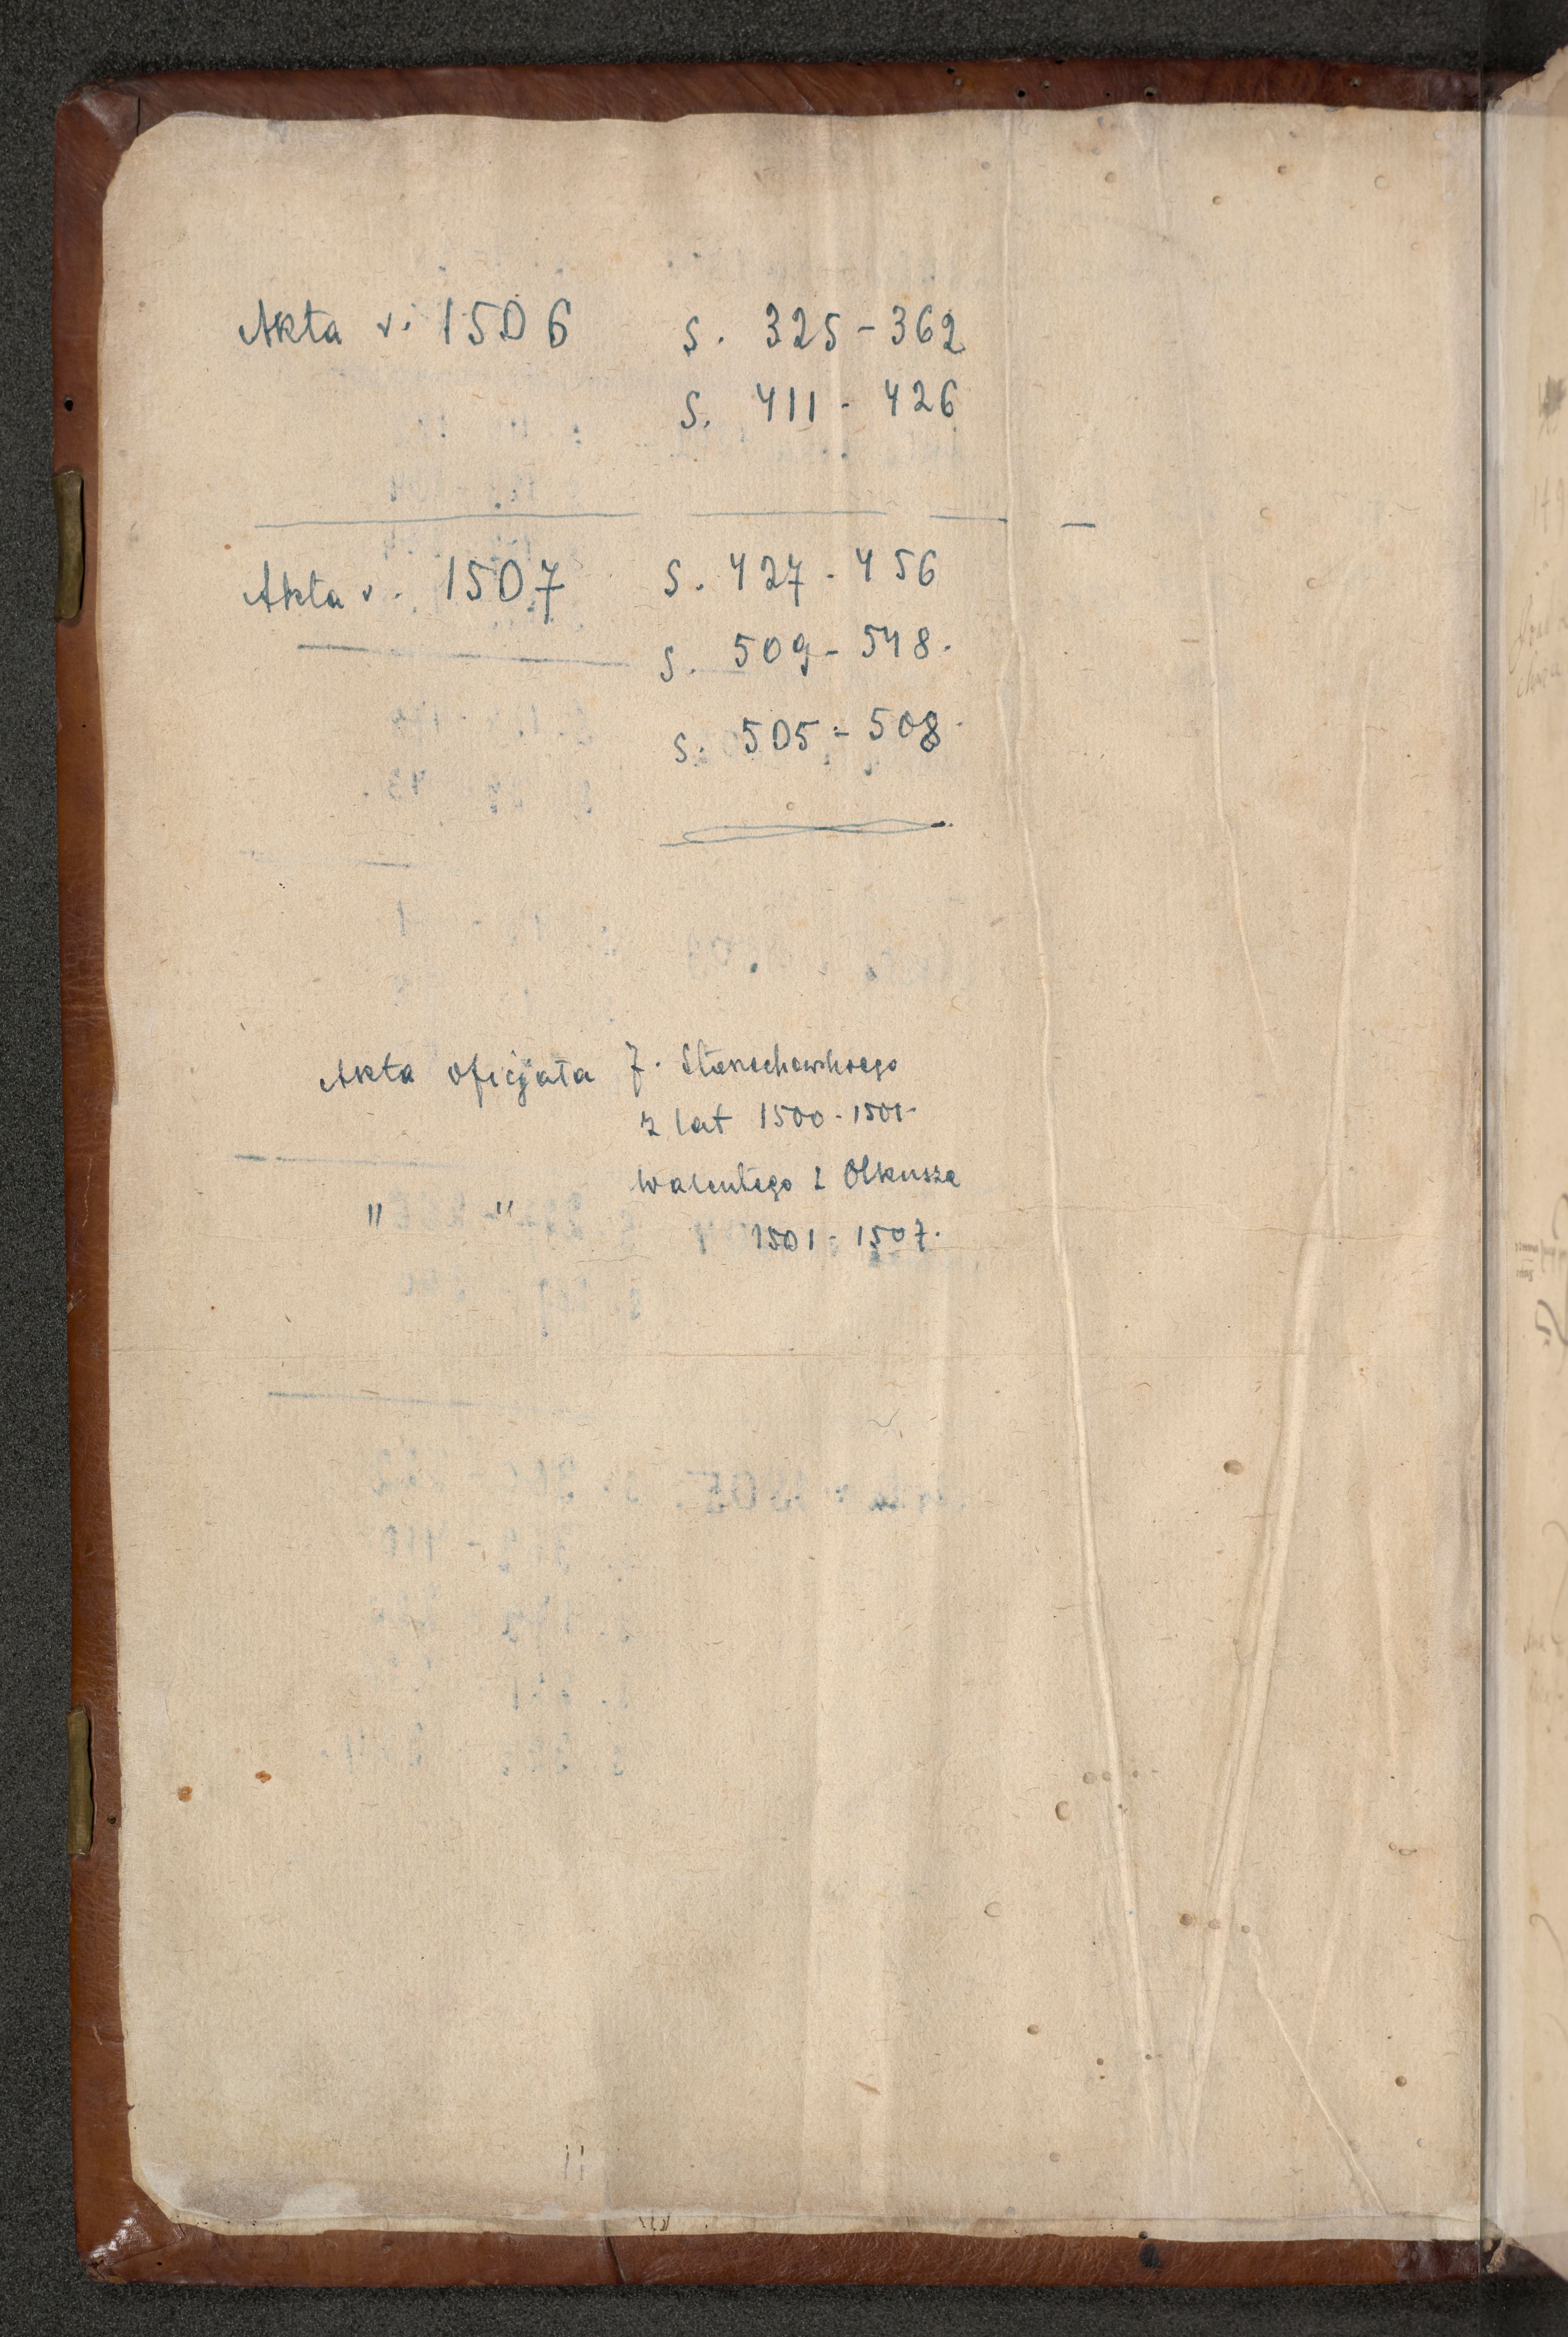 Akta r. 1506 s. 325-362
s. 411-426
Akta r. 1507 s. 427-456
s. 509-548.
s. 505-508.
Akta oficjała J.
z lat 1500-1501
Walentego z Olkusza
" "
1501-1507.